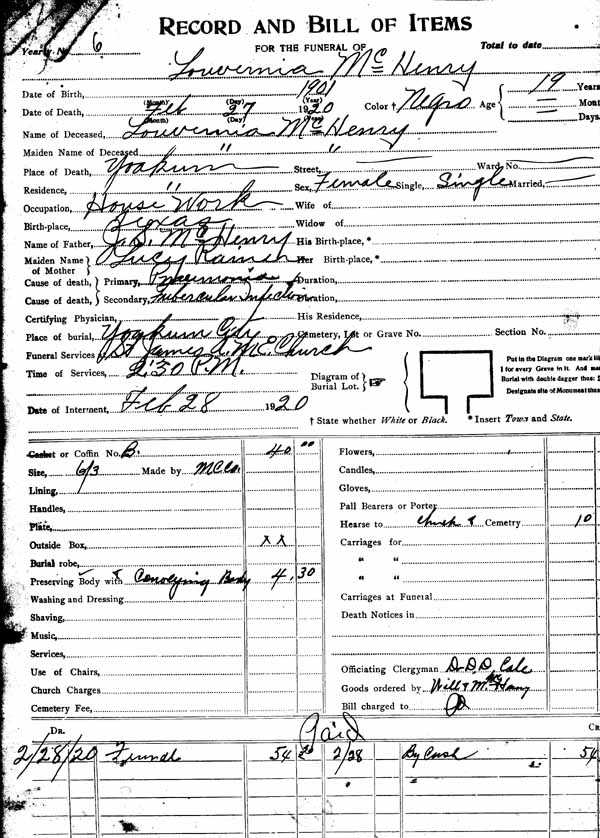 RECORD AND BILL OF ITEMS
Yearly No. 6 FOR THE FUNERAL OF Total to date
Louvernia McHenry
Date of Birth, 1901 19 Years
(Month) (Day) (Year)
Date of Death, Feb 27 1920 Color † Negro Age = Mont
(Month) (Day) Days,
Name of Deceased, Louvernia McHenry
Maiden Name of Deceased " "
Place of Death, Yoakum Street, Ward No.
Residence, " Sex, Female Single, Single Married,
Occupation, House Work Wife of
Birth-place, Texas Widow of
Name of Father, J. S. McHenry His Birth-place, *
Maiden Name of Mother } Lucy Her Birth-place, *
Cause of death, } Primary, Pneumonia Duration,
Cause of death, } Secondary, Tubercular Infection Duration,
Certifying Physician, His Residence,
Place of burial, Yoakum Cemetery, Lot or Grave No. Section No.
Funeral Services St James A. M E Church
Time of Services, 2:30 P.M.
Diagram of Burial Lot. }
Put in the Diagram one mark
I for every Grave in it. And
Burial with double dagger thus:
Designate site of Monument thus
Date of Interment, Feb 28 1920
† State whether White or Black. * Insert Town and State.
Casket or Coffin No. B. 40 00 Flowers,
Size, 6/3 Made by M C Co. Candles,
Lining, Gloves,
Handles, Pall Bearers or Porter
Plate, Hearse to Church & Cemetry 10
Outside Box, X X Carriages for
Burial robe, " "
Preserving Body with Conveying Body 4.30 " "
Washing and Dressing Carriages at Funeral
Shaving, Death Notices in
Music,
Services,
Use of Chairs, Officiating Clergyman Dr. D. D. Cole
Church Charges Goods ordered by Will & M. McHenry
Cemetery Fee, Bill charged to
DR. Paid CR
2/28/20 Funrl 54 30 2/28 By Cash 54